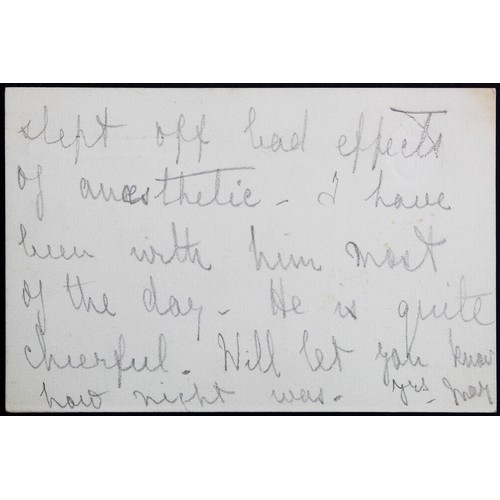 slept off bad effects
of anæsthetic - I have
been with him most
of the day - He is quite
cheerful. Will let you know
how night was. yrs. Mar